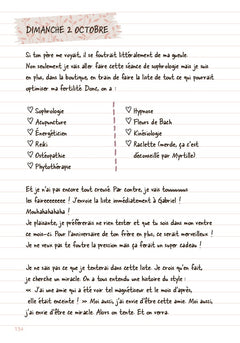 DIMANCHE 2 OCTOBRE
Si ton père me voyait, il se foutrait littéralement de ma gueule.
Non seulement je vais aller faire cette séance de sophrologie mais je suis
en plus, dans la boutique, en train de faire la liste de tout ce qui pourrait
optimiser ma fertilité. Donc, on a :
♡ Sophrologie
♡ Acupuncture
♡ Énergéticien
♡ Reiki
♡ Ostéopathie
♡ Phytothérapie
♡ Hypnose
♡ Fleurs de Bach
♡ Kinésiologie
♡ Raclette (merde, ça c'est
déconseillé par Myrtille)
Et je n'ai pas encore tout creusé. Par contre, je vais
les faireeeeeeee ! J'envoie la liste immédiatement à Gabriel !
Mouhahahahaha !
Je plaisante, je préférerais ne rien tenter et que tu sois dans mon ventre
ce mois-ci. Pour l'anniversaire de ton frère en plus, ce serait merveilleux !
Je ne veux pas te foutre la pression mais ça ferait un super cadeau !
Je ne sais pas ce que je tenterai dans cette liste. Je crois qu'en fait,
je cherche un miracle. On a tous entendu une histoire du style :
« J'ai une amie qui a été voir tel magnétiseur et le mois d'après,
elle était enceinte ! » Moi aussi, j'ai envie d'être cette amie. Moi aussi,
j'ai envie d'être ce miracle. Alors on tente. Et on verra.
134